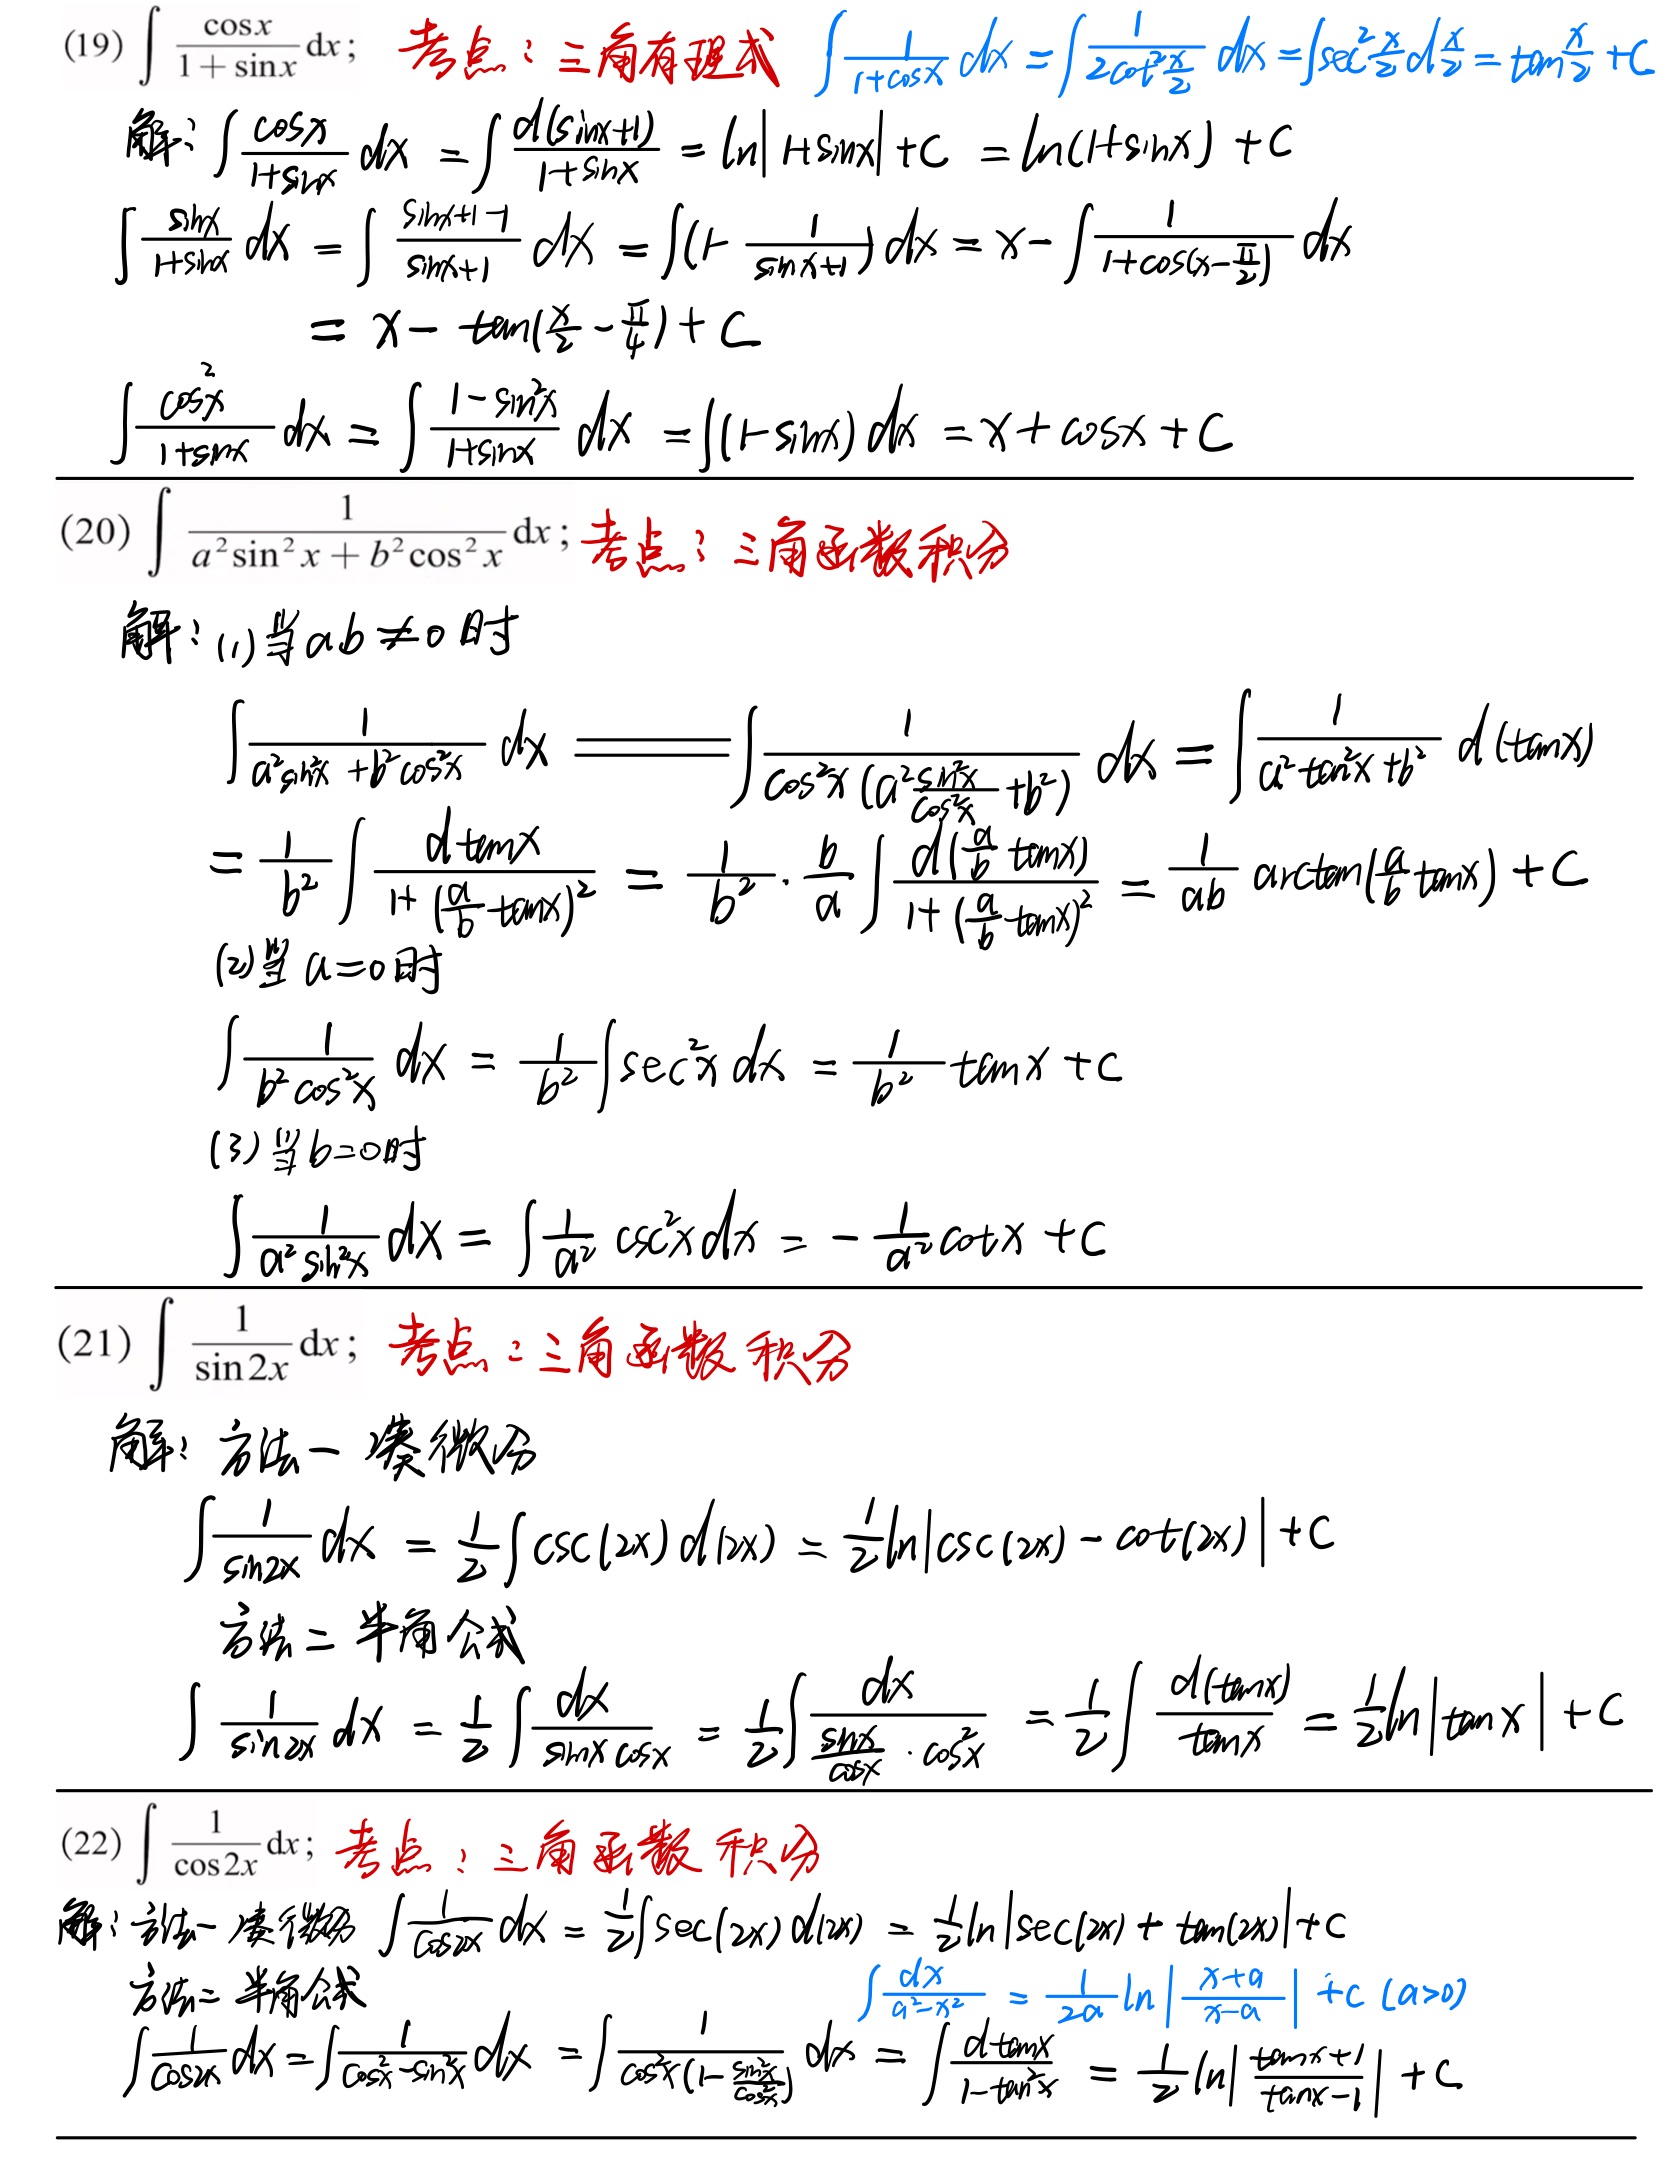 (19) ∫ cosx/(1+sinx) dx; 考点：三角有理式 ∫ 1/(1+cosx) dx = ∫ 1/(2cot²(x/2)) dx = ∫sec²(x/2) d(x/2) = tan(x/2) + C
解：∫ cosx/(1+sinx) dx = ∫ d(sinx+1)/(1+sinx) = ln|1+sinx| + C = ln(1+sinx) + C
∫ sinx/(1+sinx) dx = ∫ (sinx+1-1)/(sinx+1) dx = ∫(1- 1/(sinx+1)) dx = x - ∫ 1/(1+cos(x-π/2)) dx
= x - tan(x/2 - π/4) + C
∫ cos²x/(1+sinx) dx = ∫ (1-sin²x)/(1+sinx) dx = ∫(1-sinx) dx = x + cosx + C
(20) ∫ 1/(a²sin²x + b²cos²x) dx; 考点：三角函数积分
解：(1) 当ab≠0时
∫ 1/(a²sin²x + b²cos²x) dx = ∫ 1/(cos²x(a² sin²x/cos²x + b²)) dx = ∫ 1/(a²tan²x + b²) d(tanx)
= 1/b² ∫ dtanx/(1+(a/b tanx)²) = 1/b² · b/a ∫ d(a/b tanx)/(1+(a/b tanx)²) = 1/ab arctan(a/b tanx) + C
(2) 当a=0时
∫ 1/(b²cos²x) dx = 1/b² ∫sec²x dx = 1/b² tanx + C
(3) 当b=0时
∫ 1/(a²sin²x) dx = ∫ 1/a² csc²x dx = - 1/a² cotx + C
(21) ∫ 1/sin2x dx; 考点：三角函数积分
解：方法一 凑微分
∫ 1/sin2x dx = 1/2 ∫csc(2x) d(2x) = 1/2 ln|csc(2x) - cot(2x)| + C
方法二 半角公式
∫ 1/sin2x dx = 1/2 ∫ dx/(sinx cosx) = 1/2 ∫ dx/(sinx/cosx · cos²x) = 1/2 ∫ d(tanx)/tanx = 1/2 ln|tanx| + C
(22) ∫ 1/cos2x dx; 考点：三角函数积分
解：方法一 凑微分 ∫ 1/cos2x dx = 1/2 ∫sec(2x) d(2x) = 1/2 ln|sec(2x) + tan(2x)| + C
方法二 半角公式 ∫ dx/(a²-x²) = 1/2a ln|(x+a)/(x-a)| + C (a>0)
∫ 1/cos2x dx = ∫ 1/(cos²x-sin²x) dx = ∫ 1/(cos²x(1- sin²x/cos²x)) dx = ∫ dtanx/(1-tan²x) = 1/2 ln|(tanx+1)/(tanx-1)| + C